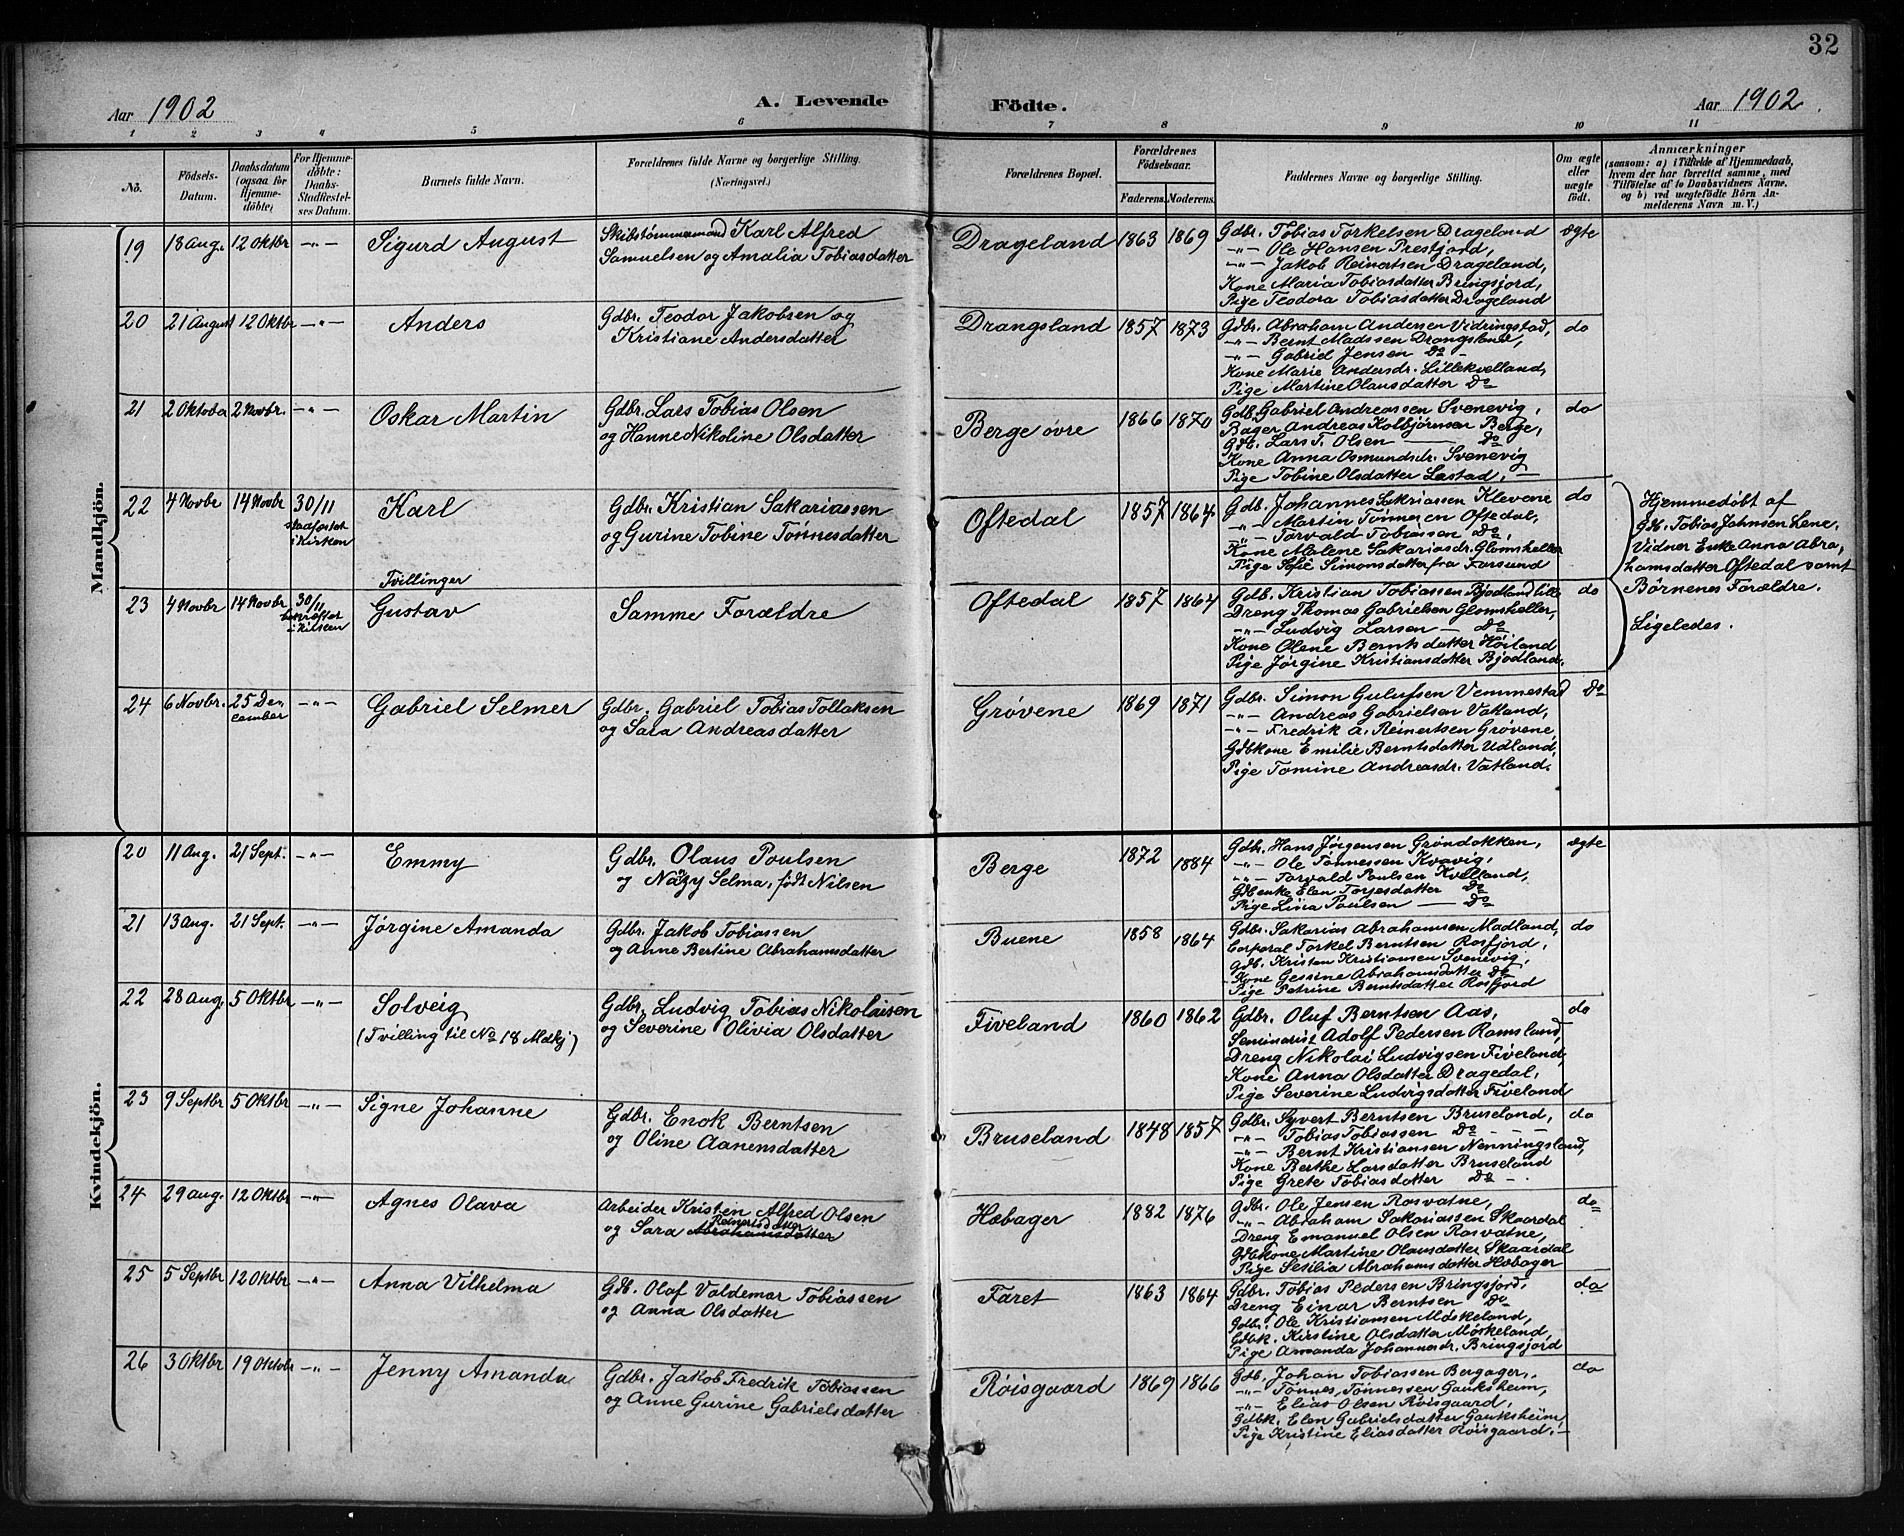 32
Aar 1902
A. Levende Födte.
Aar 1902
1 2 3 4 5 6 7 8 9 10 11
No.
Födsels-
Datum.
Daabsdatum
(ogsaa for
Hjemme-
döbte.)
For Hjemme-
döbte:
Daabs-
Stadfæstel-
ses Datum.
Barnets fulde Navn.
Forældrenes fulde Navne og borgerlige Stilling.
(Næringsvei.)
Forældrenes Bopæl.
Forældrenes
Födselsaar.
Faderens.
Moderens.
Faddernes Navne og borgerlige Stilling.
Om ægte
eller
uægte
födt.
Anmærkninger
(saasom: a) i Tilfælde af Hjemmedaab,
hvem der har forrettet samme, med
Tilföielse af to Daabsvidners Navne.
og b) ved uægtefödte Börn An-
melderens Navn m. V.)
Mandkjön.
19 18 Aug. 12 Oktbr -"- Sigurd August
Skibstømmermand Karl Alfred
Samuelsen og Amalia Tobiasdatter
Drageland 1863 1869
Gdbr. Tobias Torkelsen Drageland
-"- Ole Hansen Prestjord,
-"- Jakob Reinertsen Drageland,
Kone Maria Tobiasdatter Bringsjord,
Pige Teodora Tobiasdatter Drageland
ægte
20 21 August 12 Oktbr -"- Anders
Gdbr. Teodor Jakobsen og
Kristiane Andersdatter
Drangsland 1857 1873
Gdbr. Abraham Andersen Vidringstad,
-"- Bernt Madssen Drangsland,
-"- Gabriel Jensen Do -
Kone Marie Andersdr. Lillekvelland,
Pige Martine Olausdatter Do
do
21 2 Oktober 2 Novbr. -"- Oskar Martin
Gdbr. Lars Tobias Olsen
og Hanne Nikoline Olsdatter
Berge øvre 1866 1870
Gdb. Gabriel Andreassen Svenevig,
Bager Andreas Kolbjørnsen Berge,
Gdb. Lars T. Olsen — Do
Kone Anna Osmundsdr. Svenevig
Pige Tobine Olsdatter Læstad, —
do
22 4 Novbr 14 Novbr 30/11
stadfæstet
i Kirken
Karl
Gdbr. Kristian Sakariassen
og Gurine Tobine Tønnesdatter
Oftedal 1857 1864
Gdb. Johannes Sakriassen Klevene
-"- Martin Tønnesen Oftedal,
-"- Torvald Tobiassen Do,
Kone Malene Sakariasdr. Glomsheller
Pige Sofie Simonsdatter fra Farsund
do
Hjemmedøbt af
Gdb. Tobias Johnsen Lene,
Vidner Enke Anna Abra,
hamsdatter Oftedal samt
Børnenes Forældre.
Tvillinger
23 4 Novbr 14 Novbr 30/11
bekræftet
i Kirken
Gustav
Samme Forældre
Oftedal 1857 1864
Gdb. Kristian Tobiassen Bjødland lille
Dreng Thomas Gabrielsen Glomsheller,
-"- Ludvig Larsen — Do
Kone Olene Berntsdatter Høiland
Pige Jørgine Kristiansdatter Bjødland.
do
Ligeledes.
24 6 Novbr. 25 De,
cember
-"- Gabriel Selmer
Gdbr. Gabriel Tobias Tollaksen
og Sara Andreasdatter
Grøvene 1869 1871
Gdbr. Simon Gulufsen Vemmestad
-"- Andreas Gabrielsen Vatland,
-"- Fredrik A. Reinertsen Grøvene,
Gdbkone Emilie Berntsdatter Udland,
Pige Tomine Andreasdr. Vatland.
Do
Kvindekjön.
20 11 Aug. 21 Sept. -"- Emmy
Gdbr. Olaus Poulsen
og Nazy Selma, født Nilsen
Berge 1872 1884
Gdb. Hans Jørgensen Grøndokken,
-"- Ole Tønnessen Kvavig,
-"- Torvald Poulsen Kvelland,
Gdbenke Elen Torjesdatter Do
Pige Lina Poulsen — Do
ægte
21 13 Aug. 21 Sept. -"- Jørgine Amanda
Gdbr. Jakob Tobiassen
og Anne Bertine Abrahamsdatter
Buene 1858 1864
Gdbr. Sakarias Abrahamsen Madland,
Corporal Torkel Berntsen Rosfjord,
Gdb. Kristen Kristiansen Svenevig,
Kone Gessine Abrahamsdatter Do
Pige Petrine Berntsdatter Rosfjord
do
22 28 Aug. 5 Oktbr -"- Solveig
(Tvilling til No 18 Mdkj)
Gdbr. Ludvig Tobias Nikolaisen
og Severine Olivia Olsdatter
Fiveland 1860 1862
Gdbr. Oluf Berntsen Aas,
Seminarist Adolf Pedersen Ramsland,
Dreng Nikolai Ludvigsen Fiveland,
Kone Anna Olsdatter Dragedal,
Pige Severine Ludvigsdatter Fiveland
do
23 9 Septbr 5 Oktbr -"- Signe Johanne
Gdbr. Enok Berntsen
og Oline Aanensdatter
Bruseland 1848 1857
Gdbr. Syvert Berntsen Bruseland,
-"- Tobias Tobiassen Do - - -
-"- Bernt Kristiansen Nenningsland,
Kone Berthe Larsdatter Bruseland
Pige Grete Tobiasdatter Do - .
do
24 29 Aug. 12 Oktbr -"- Agnes Olava
Arbeider Kristen Alfred Olsen
Reinertsdatter
og Sara Abrahamsdatter
Hæbager 1882 1876
Gdbr. Ole Jensen Rosvatne,
-"- Abraham Sakariassen Skaardal
Dreng Emanuel Olsen Rosvatne,
Gdbkone Martine Olausdatter Skaardal
Pige Sesilia Abrahamsdatter Hæbager
do
25 5 Septbr 12 Oktbr -"- Anna Vilhelma
Gdb. Olaf Valdemar Tobiassen
og Anna Olsdatter
Faret 1863 1864
Gdbr. Tobias Pedersen Bringsjord,
Dreng Einar Berntsen Do
Gdbr. Ole Kristiansen Møskeland,
Gdbk. Kirstine Olsdatter Møskeland,
Pige Amanda Johannesdr. Bringsjord
do
26 3 Oktbr 19 Oktobr -"- Jenny Amanda
Gdbr. Jakob Fredrik Tobiassen
og Anne Gurine Gabrielsdatter
Røisgaard 1869 1866
Gdb. Johan Tobiassen Bergager,
-"- Tønnes Tønnessen Gauksheim,
-"- Elias Olsen Røisgaard,
Gdbk. Elen Gabrielsdatter Gauksheim,
Pige Kristine Eliasdatter Røisgaard. —
do